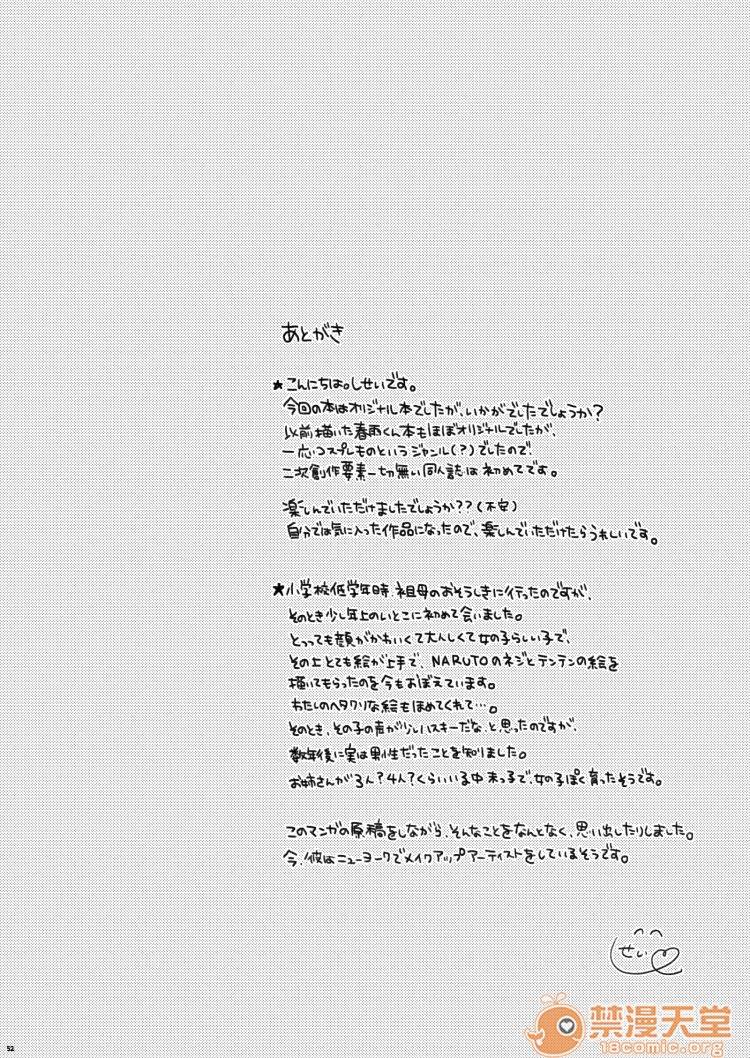 あとがき
★こんにちは。しせいです。
今回の本はオリジナル本でしたが、いかがでしたでしょうか？
以前描いた春雨くん本もほぼオリジナルでしたが、
一応コスプレものというジャンル(？)でしたので！
二次創作要素一切無い同人誌は初めてです。
楽しんでいただけましたでしょうか？？(不安)
自分では気に入った作品になったので、楽しんでいただけたらうれしいです。
★小学校低学年時、祖母のおそうしきに行ったのですが、
そのとき少し年上のいとこに初めて会いました。
とっっても顔がかわいくて大人しくて女の子らしい子で、
その上とても絵が上手で、NARUTOのネジとテンテンの絵を
描いてもらったのを今もおぼえています。
わたしのヘタクソな絵もほめてくれて…。
そのとき、その子の声が少しハスキーだな、と思ったのですが、
数年後に実は男性だったことを知りました。
お姉さんが3人？4人？くらいいる中、末っ子で、女の子ぽく育ったそうです。
このマンガの原稿をしながら、そんなことをなんとなく、思い出したりしました。
今、彼はニューヨークでメイクアップアーティストをしているそうです。
せい
52
禁漫天堂
18comic.org